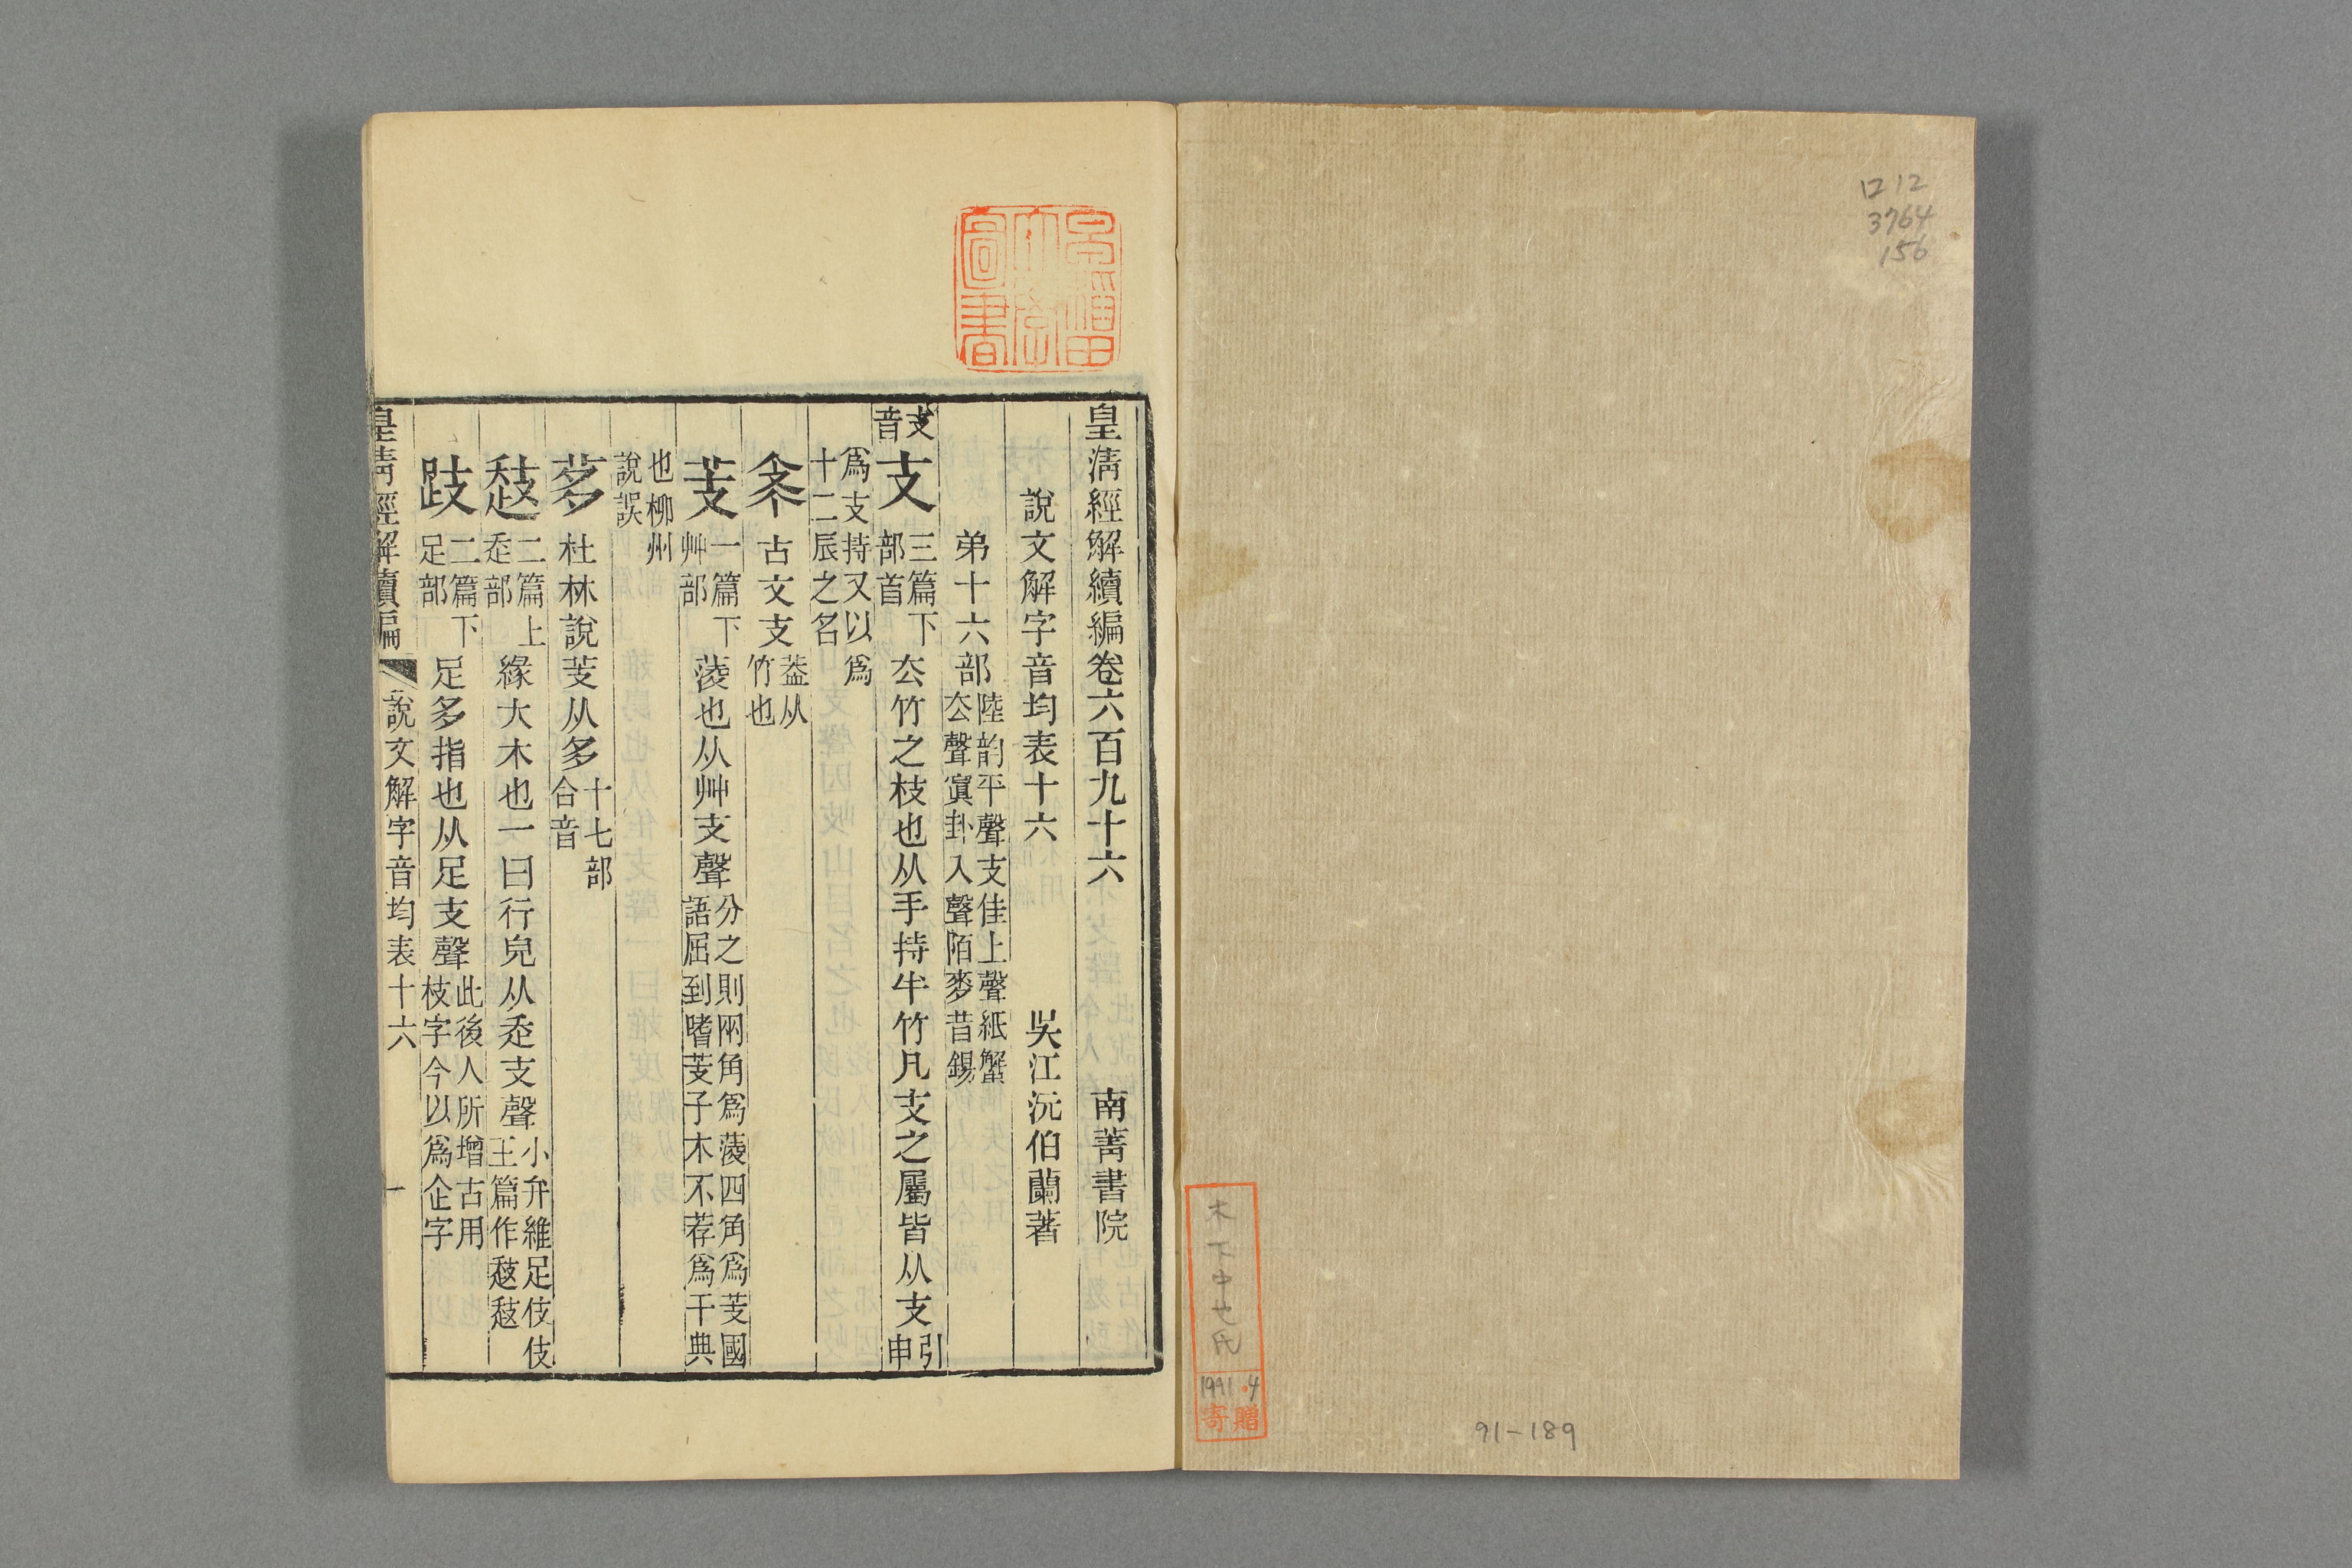 ロ12
3764
156
木下中也氏
1991.4
寄贈
91-189
早稲田大學圖書
皇清經解續編卷六百九十六
南菁書院
說文解字音均表十六
吳江沅伯蘭著
弟十六部
陸韵平聲支佳上聲紙蟹
去聲寘卦入聲陌麥昔錫
支音
支
三篇下
部首
去竹之枝也从手持半竹凡支之屬皆从支
引
申
爲支持又以爲
十二辰之名
古文支
葢从
竹也
芰
一篇下
艸部
蔆也从艸支聲
分之則兩角爲蔆四角爲芰國
語屈到嗜芰子木不荐爲干典
也柳州
說誤
茤
杜林說芰从多
十七部
合音
二篇上
辵部
緣大木也一曰行皃从辵支聲
小弁維足伎伎
王篇作
跂
二篇下
足部
足多指也从足支聲
此後人所增古用
枝字今以爲企字
皇清經解續編
說文解字音均表十六
一